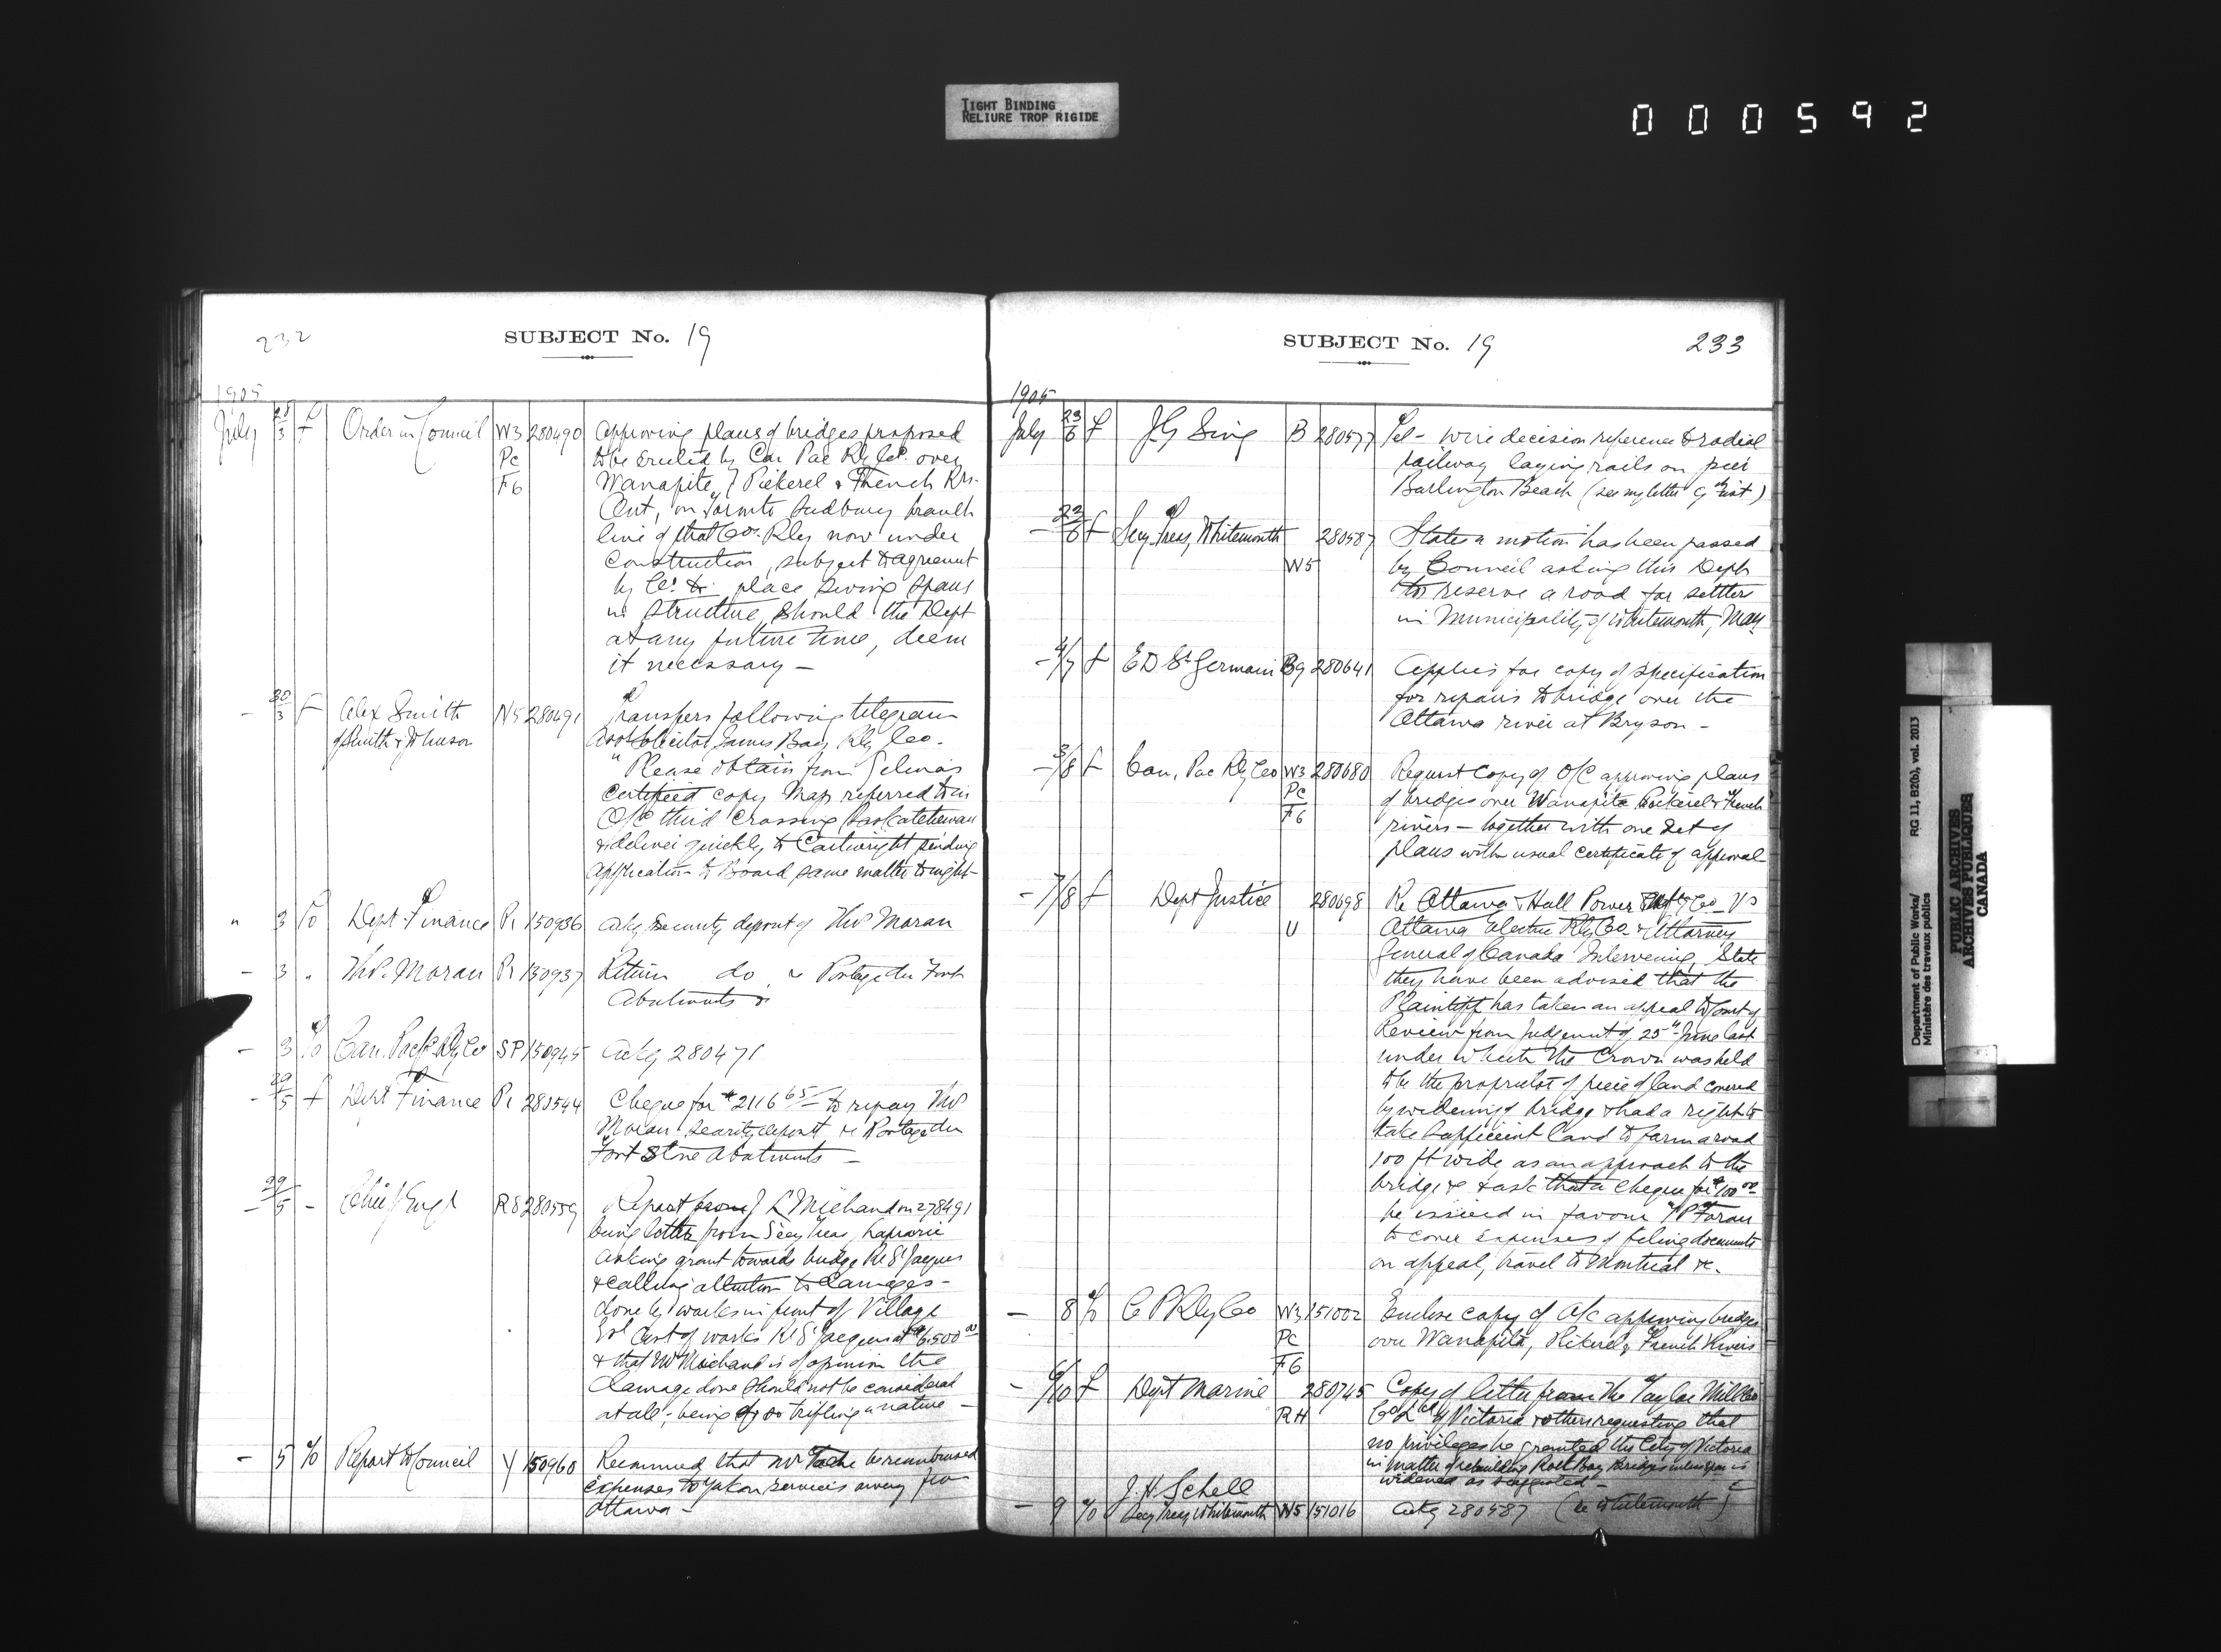 TIGHT BINDING
RELIURE TROP RIGIDE
000592
232
SUBJECT No. 19
1905
July 28/3 f Order in Council W3 280490 Approving plans of bridges proposed
Pc to be erected by Can Pac Rly Co. over
F6 Wanapite, Pickerel & French Rrs.
Ont, on Toronto Sudbury branch
line of that Co. Rly now under
construction, subject to agreement
by Co. to place swing spans
in structure should the Dept
at any future time, deem
it necessary —
— 30/3 f Alex Smith N5 280491 Transfers following telegram
of Smith & Johnson Solicitor James Bay Rly Co.
"Please obtain from
certified copy Map referred to in
O/C third crossing Saskatchewan
& deliver quickly to Cartwright
application to Board same matter tonight
" 3 To Dept Finance P1 150936 Ackg security deposit of Thos Moran
— 3 " Thos. Moran P1 150937 Return do re Portage du Fort
Abutments
— 3 To Can. Pacfc Rly Co SP 150945 Ackg 280471
— 29/5 f Dept Finance P1 280544 Cheque for $2116 65/ to repay Thos
Moran security deposit re Portage du
Fort Stone abutments —
— 29/5 - Chief Engr R8 280559 Report from J L Michaud on 278491
being letter from Secy Treas, Laprairie
asking grant towards bridge Rr St Jacques
& calling attention to damages
done by works in front of Village
Est Cost of works Rr St Jacques at $6.500 00
& that Mr Michaud is of opinion the
damage done should not be considered
at all, being of so trifling a nature —
— 5 To Report to Council Y 150960 Recommend that Mr Tache be reimbursed
expenses to Yukon services away from
Ottawa —
SUBJECT No. 19
233
1905
July 23/6 f J G Sing B 280577 Tel - wire decision reference to radial
railway laying rails on pier
Burlington Beach (see my letter 9th inst)
— 22/6 f Secy Treas, Whitemouth 280587 States a motion has been passed
W5 by Council asking this Dept
to reserve a road for settlers
in Municipality of Whitemouth, Man
— 4/7 f E D St Germain B9 280641 Applies for copy of specification
for repairs to bridge over the
Ottawa river at Bryson —
— 3/8 f Can, Pac Rly Co W3 280680 Request copy of O/C approving plans
Pc of bridges over Wanapite Pickerel & French
F6 rivers — together with one set of
plans with usual certificate of approval
— 7/8 f Dept Justice 280698 Re Ottawa & Hull Power Co Vs
U Ottawa Electric Rly Co & Attorney
General of Canada Intervening, State
they have been advised that the
Plaintiff has taken an appeal to Court of
Review from Judgement of 25th June last
under which the Crown was held
to be the proprietor of piece of land covered
by widening of bridge & had a right to
take sufficient land to form a road
100 ft wide, as an approach to the
bridge & ask that a cheque for $100 00
be issued in favour T P Foran
to cover expenses of filing documents
on appeal, travel to Montreal &c.
— 8 To C P Rly Co W3 151002 Enclose copy of O/C approving bridges
Pc over Wanapita, Pickerel & French Rivers
F6
— 6/10 f Dept Marine 280745 Copy of letter from the Taylor Mill Co
RH Co Ltd of Victoria & others requesting that
no privileges be granted the City of Victoria
in matter of rebuilding Rock Bay Bridge unless span is
widened as suggested —
J. H. Schell
— 9 To Secy Treas Whitemouth W5 151016 Ackg 280587 (re Whitemouth)
Department of Public Works/
Ministère des travaux publics
RG 11, B2(b), vol. 2013
PUBLIC ARCHIVES
ARCHIVES PUBLIQUES
CANADA